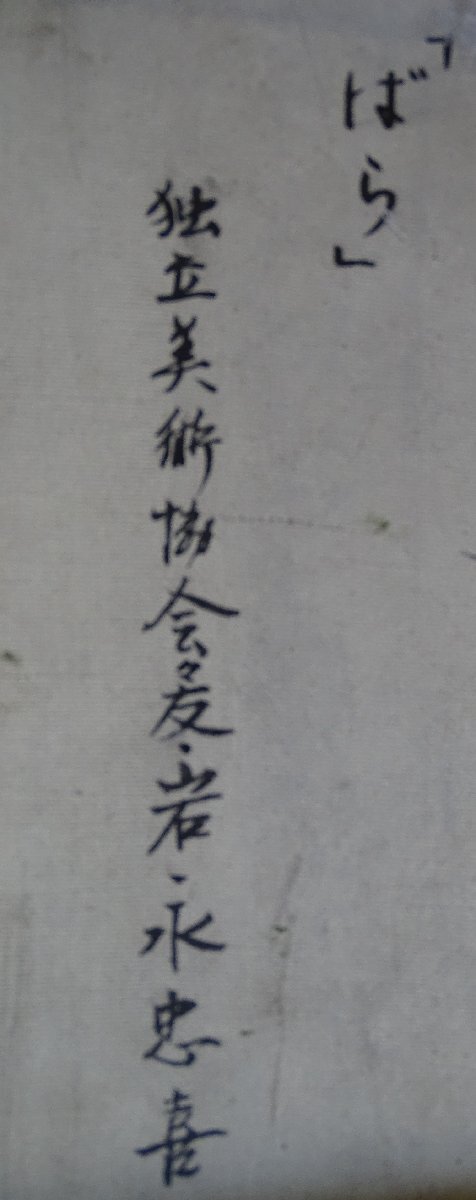 「ばら」
独立美術協会々友・岩永忠喜